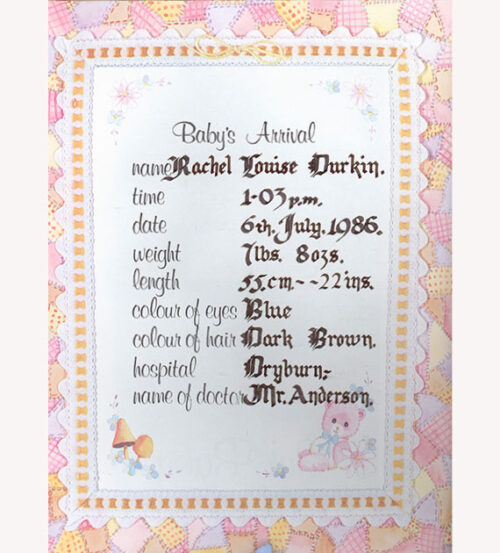 Baby's Arrival
name Rachel Louise Durkin.
time 1-03 p.m.
date 6th. July. 1986.
weight 7lbs. 8ozs.
length 55.cm~-22 ins.
colour of eyes Blue
colour of hair Dark Brown.
hospital Dryburn,-
name of doctor Mr. Anderson.